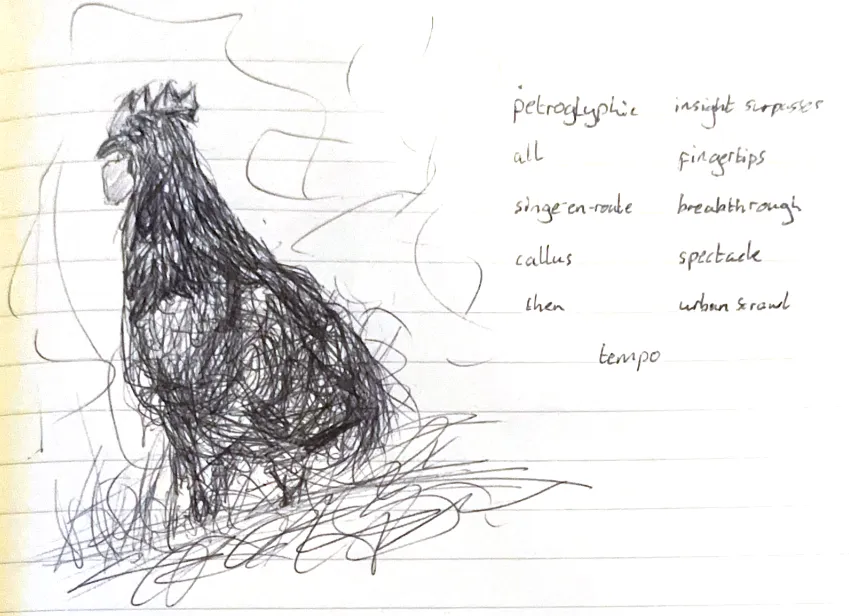 petroglyphic insight surpasses
all fingertips
singe-en-route breakthrough
callus spectacle
then urban scrawl
tempo